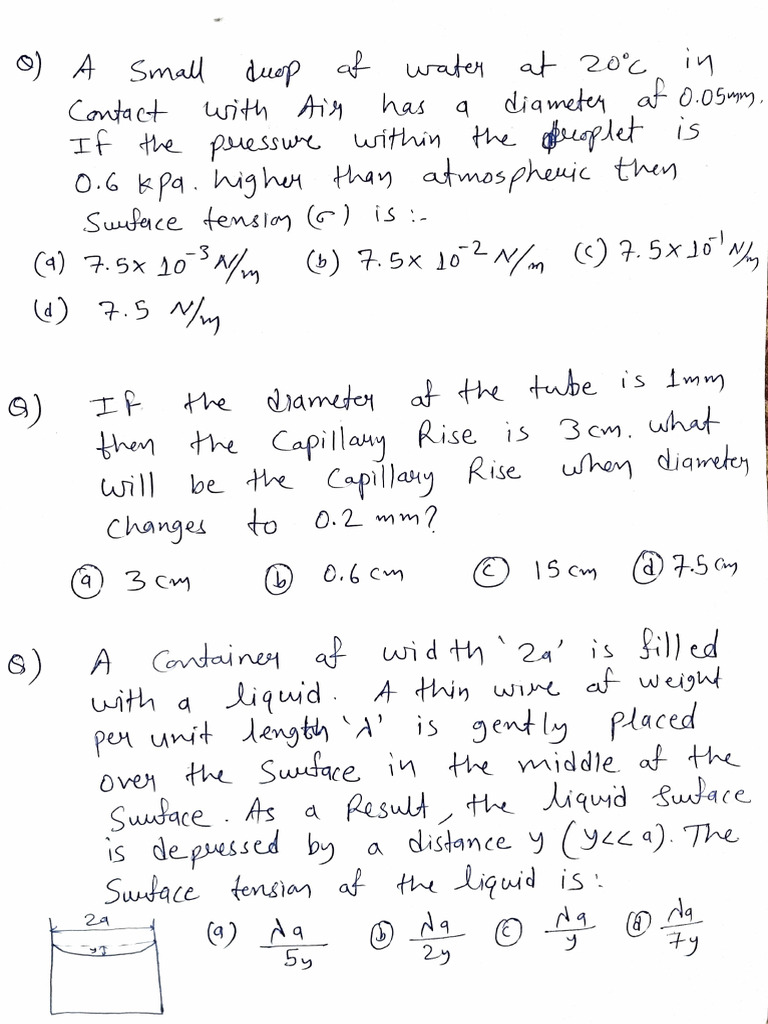 Q) A Small drop of water at 20°C in
Contact with Air has a diameter of 0.05mm.
If the pressure within the droplet is
0.6 kPa. higher than atmospheric then
Surface tension (σ) is :-
(a) 7.5 × 10⁻³ N/m (b) 7.5 × 10⁻² N/m (c) 7.5 × 10⁻¹ N/m
(d) 7.5 N/m
Q) If the diameter of the tube is 1mm
then the Capillary Rise is 3cm. what
will be the Capillary Rise when diameter
changes to 0.2 mm?
(a) 3 cm (b) 0.6 cm (c) 15 cm (d) 7.5 cm
Q) A Container of width '2a' is filled
with a liquid. A thin wire of weight
per unit length 'λ' is gently placed
over the Surface in the middle of the
Surface. As a Result, the liquid Surface
is depressed by a distance y (y<<a). The
Surface tension of the liquid is:
2a
y
(a) λa/5y (b) λa/2y (c) λa/y (d) λa/7y